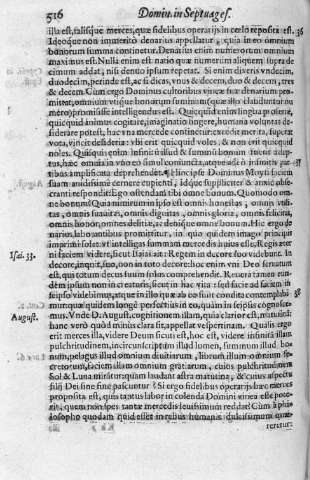 516 Domin. in Septuages.
illa est, talisque merces, quæ fidelibus operarijs in cœlo reposita est. 36
Ideoque non immerito denarius appellatur, quia in eo omnium
bonorum summa continetur. Denarius enim numerorum omnium
maximus est. Nulli enim est natio quæ numerum aliquem supra de
cimum addat, nisi denuo ipsum repetat. Si enim diveris vndecim,
duodecim, perinde est, ac si dicas, vnus & decem, duo & decem, tres
& decem. Cum ergo Dominus cultoribus vineæ suæ denarium pro-
mittat, omnium vtique bonorum summam (quæ illo clauduntur nu
mero) promisisse intelligendus est. Quicquid enim lingua proferre,
quicquid animus cogitare, imaginatio fingere, humana voluntas de-
siderare potest, hac vna mercede continetur: excedit merita, superat
vota, vincit desideria: vbi erit quicquid voles, & non erit quicquid
noles. Quisquis enim
haec omnia in vno eo simul coniuncta, atque adeo infinitis par- 37
tibus amplificata deprehendet. Hinc ipse Dominus Moysi faciem
suam auidissime cernere cupienti, Idque suppliciter & annixe obse-
cranti respondit: Ego ostendam tibi omne bonum. Quomodo om-
ne bonum? Quia nimirum in ipso est omnis honestas, omnis vtili-
tas, omnis suauitas, omnis dignitas, omnis gloria, omnis felicitas,
omnis honor, omnes delitiæ, ac denique omne bonum. Hic ergo de-
narius, laboris omnibus promittitur, in quo quidem imago principis
imprimi solet: vt intelligas summam mercedis huius esse, Regis æter
Isai. 33. ni faciem videre, sicut Isaias ait: Regem in decore suo videbunt. In
decore, inquit, suo, non in toto decore: hoc enim vni Deo seruatum
est, qui totum decus suum solus comprehendit. Reuera tamen eun-
dem ipsum non in creatoris, sicut in hac vita: sed facie ad faciem in
seipso videbimus, atque in illo quæ ab eo sunt condita contemplabi- 38
mur, quæ quidem longe perfectius in eo, quam in seipsis cognosce-
August. mus. Vnde D. August. cognitionem illam, quia clarior est, matutinā:
hanc vero quod minus clara sit, appellat vespertinam. Qualis ergo
erit merces illa, videre Deum sicuti est, hoc est, videre infinitā illam
pulchritudinem, incircunscriptum illud lumen, summum illud bo-
num, pelagus illud omnium diuitiarum, librum illum omnium se-
cretorum, faciem illam omnium gratiarum, cuius pulchritudinem
Sol & Luna mirantur, quam laudant astra matutina, & cuius aspectu
filij Dei sine fine pascuntur? Si ergo fidelibus operarijs hæc merces
proposita est, quis tantus labor in colenda Domini vinea esse pote-
rit, quem non spes tantæ mercedis leuissimum reddat? Cum à phi-
losopho quodam quid esset in rebus humanis dulcissimum quæ-
reretur: